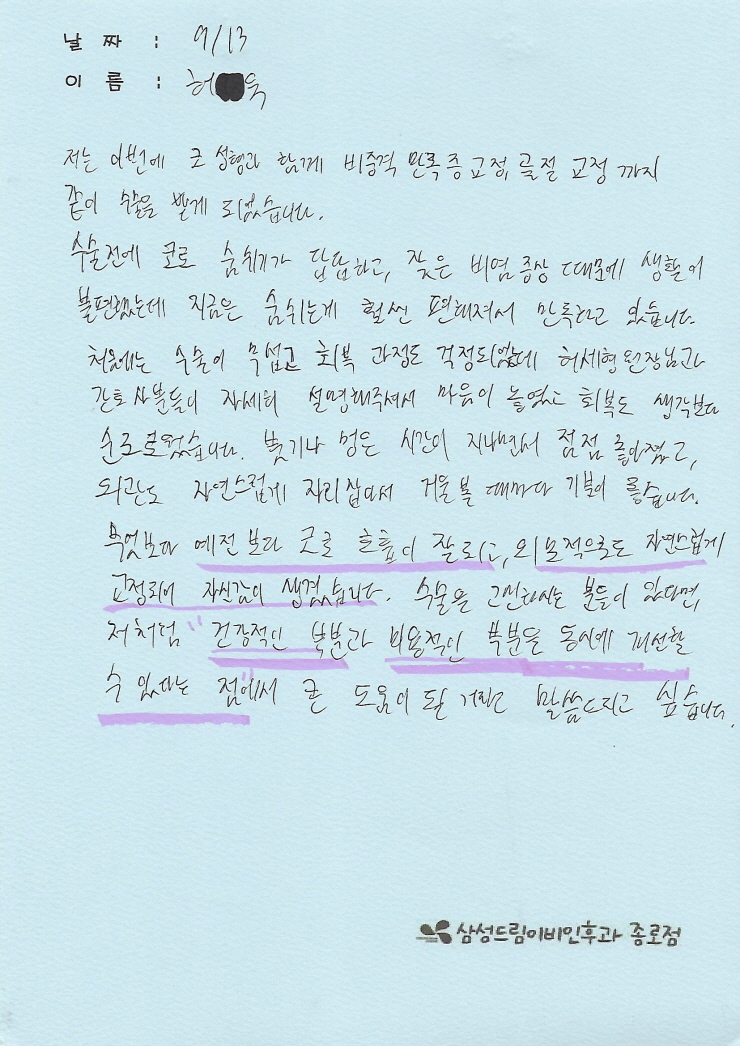 날 짜 : 9/13
이 름 : 허 욱
저는 이번에 코 성형과 함께 비중격 만곡증 교정, 골절 교정 까지
같이 수술을 받게 되었습니다.
수술전에 코로 숨쉬기가 답답하고, 잦은 비염 증상 때문에 생활이
불편했는데 지금은 숨쉬는게 훨씬 편해져서 만족하고 있습니다.
처음에는 수술이 무섭고 회복 과정도 걱정되었는데 허세형원장님과
간호사분들이 자세히 설명해주셔서 마음이 놓였고 회복도 생각보다
순조로웠습니다. 붓기나 멍은 시간이 지나면서 점점 좋아졌고,
외관도 자연스럽게 자리잡아서 거울볼 때마다 기분이 좋습니다.
무엇보다 예전 보다 코로 호흡이 잘되고, 외모적으로도 자연스럽게
교정되어 자신감이 생겼습니다. 수술을 고민하시는 분들이 있다면,
저처럼 "건강적인 부분과 미용적인 부분을 동시에 개선할
수 있다는 점"에서 큰 도움이 될 거라고 말씀드리고 싶습니다.
삼성드림이비인후과 종로점